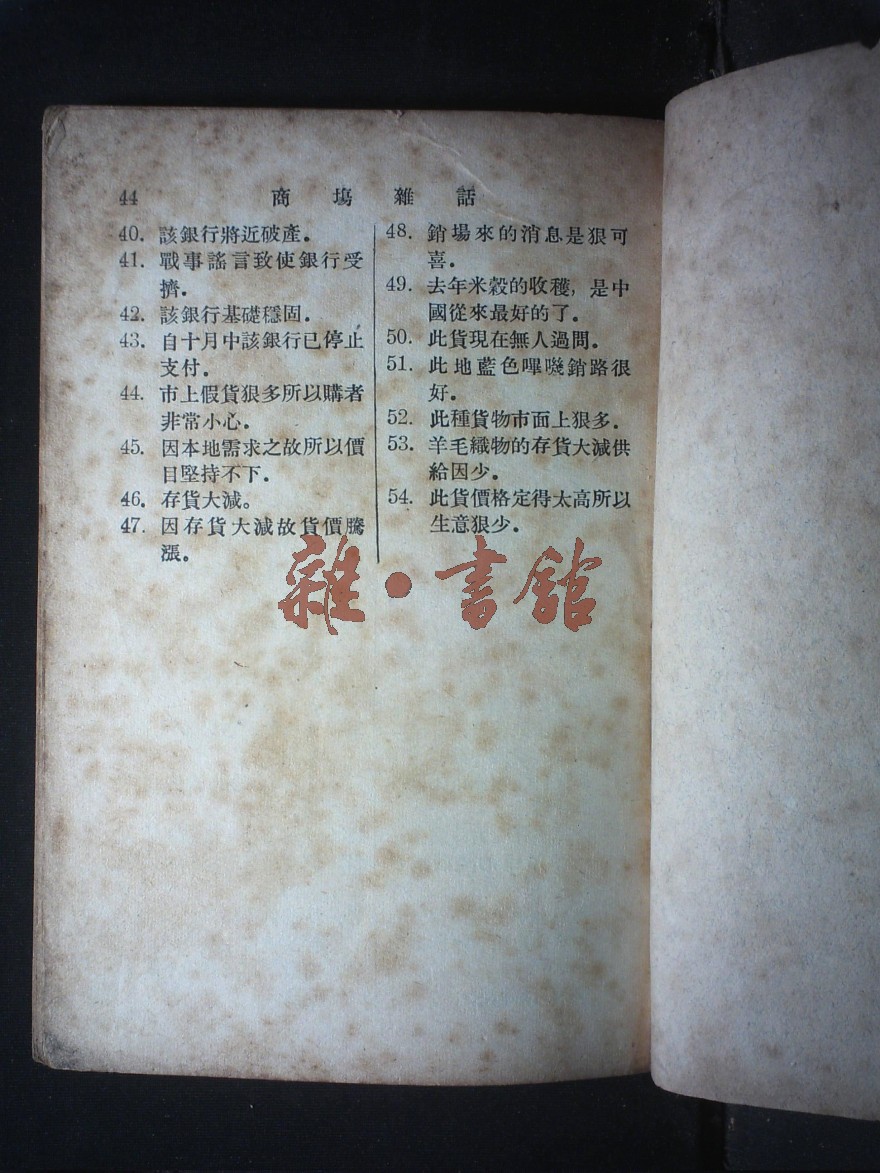 44 商場雜話
40. 該銀行將近破產。
41. 戰事謠言致使銀行受
擠。
42. 該銀行基礎穩固。
43. 自十月中該銀行已停止
支付。
44. 市上假貨狠多所以購者
非常小心。
45. 因本地需求之故所以價
目堅持不下。
46. 存貨大減。
47. 因存貨大減故貨價騰
漲。
48. 銷場來的消息是狠可
喜。
49. 去年米穀的收穫，是中
國從來最好的了。
50. 此貨現在無人過問。
51. 此地藍色嗶嘰銷路很
好。
52. 此種貨物市面上狠多。
53. 羊毛織物的存貨大減供
給因少。
54. 此貨價格定得太高所以
生意狠少。
雜·書館